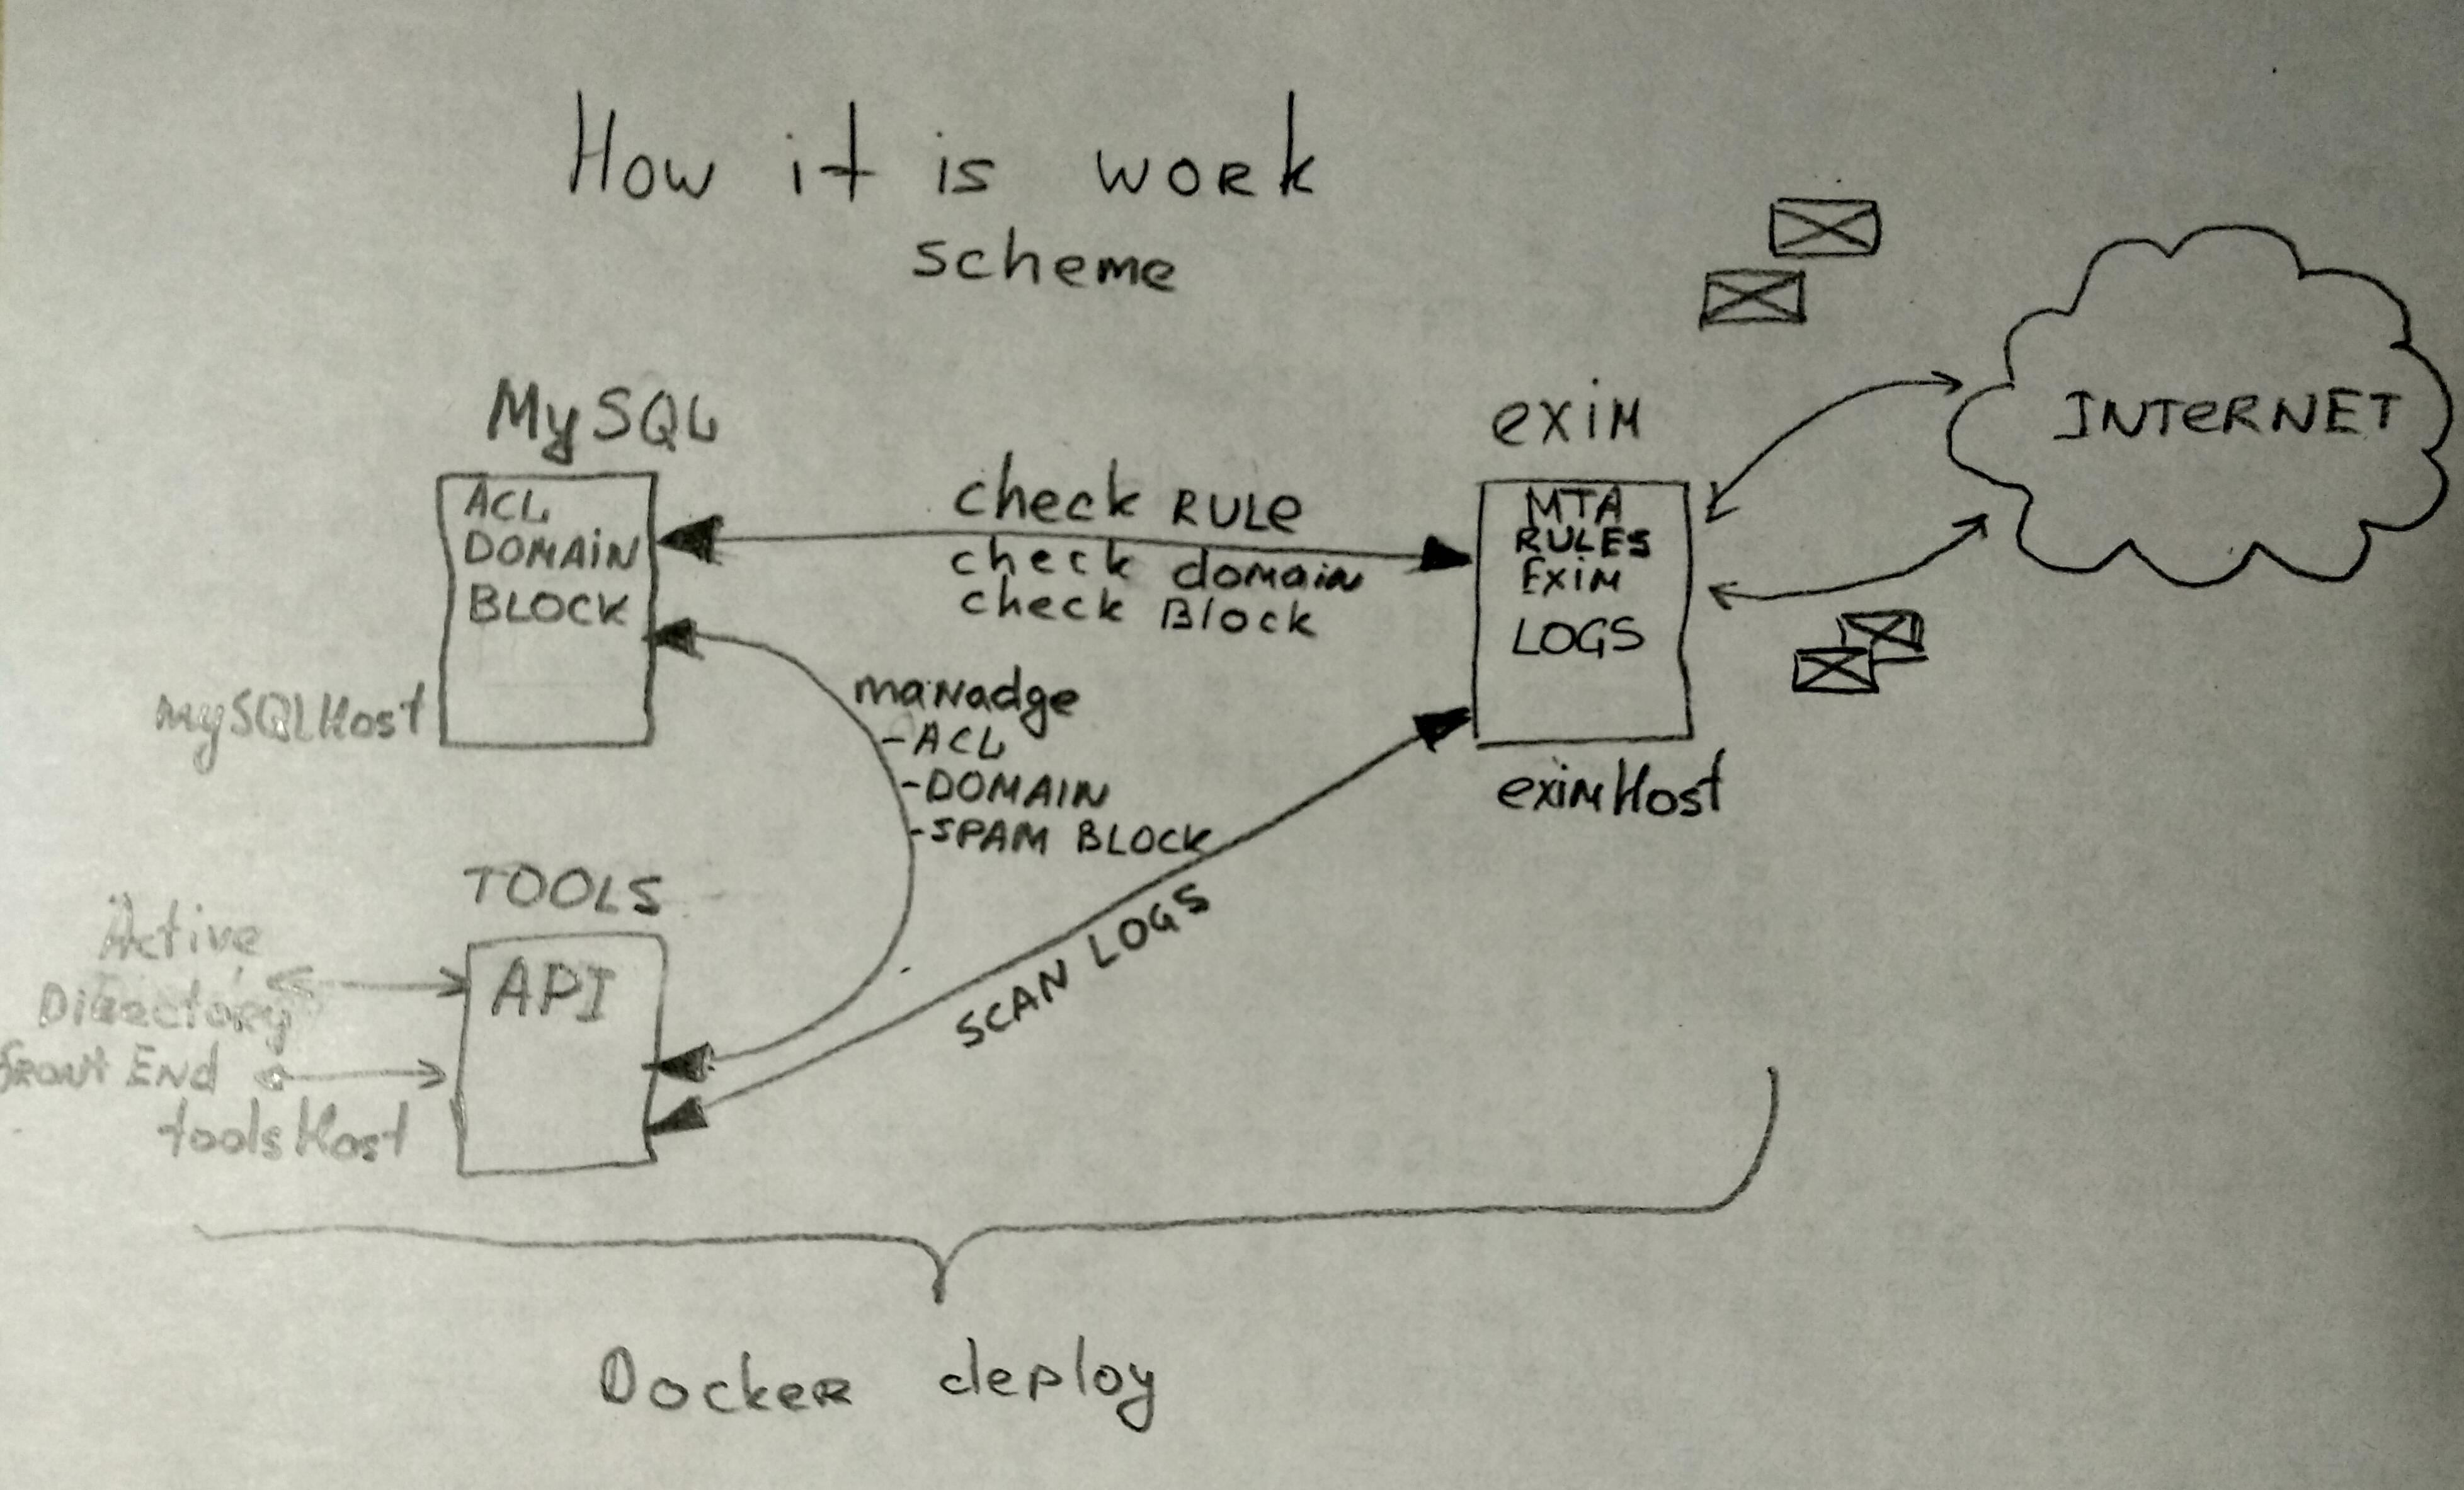 How it is work
scheme
MySQL
ACL
DOMAIN
BLOCK
mySQLHost
check RULe
check domain
check Block
exim
MTA
RULES
EXIM
LOGS
eximHost
INTeRNET
manadge
-ACL
-DOMAIN
-SPAM BLOCK
SCAN LOGS
TOOLS
API
Active
Directory
Front End
toolsHost
Docker deploy